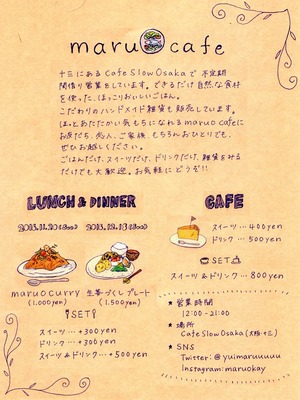 maruo cafe
十三にある Cafe Slow Osaka で 不定期
間借り営業をしています。できるだけ自然な食材
を使った、ほっこりおいしいごはん。
こだわりのハンドメイド雑貨も販売しています。
ほっとあたたかい気もちになれる maruo cafeに
お友だち、恋人、ご家族、もちろんおひとりでも、
ぜひお越しください。
ごはんだけ、スイーツだけ、ドリンクだけ、雑貨をみる
だけでも大歓迎。お気軽にどうぞ!!
LUNCH & DINNER
maruo curry
(1,000yen)
生春づくしプレート
(1,500yen)
SET
スイーツ … +300yen
ドリンク … +300yen
スイーツ&ドリンク … +500yen
CAFE
スイーツ … 400yen
ドリンク … 500yen
SET
スイーツ&ドリンク … 800yen
★ 営業時間
12:00-21:00
★ 場所
Cafe Slow Osaka (大阪・十三)
★ SNS
Twitter: @yuimaruuuuu
Instagram: maruokay